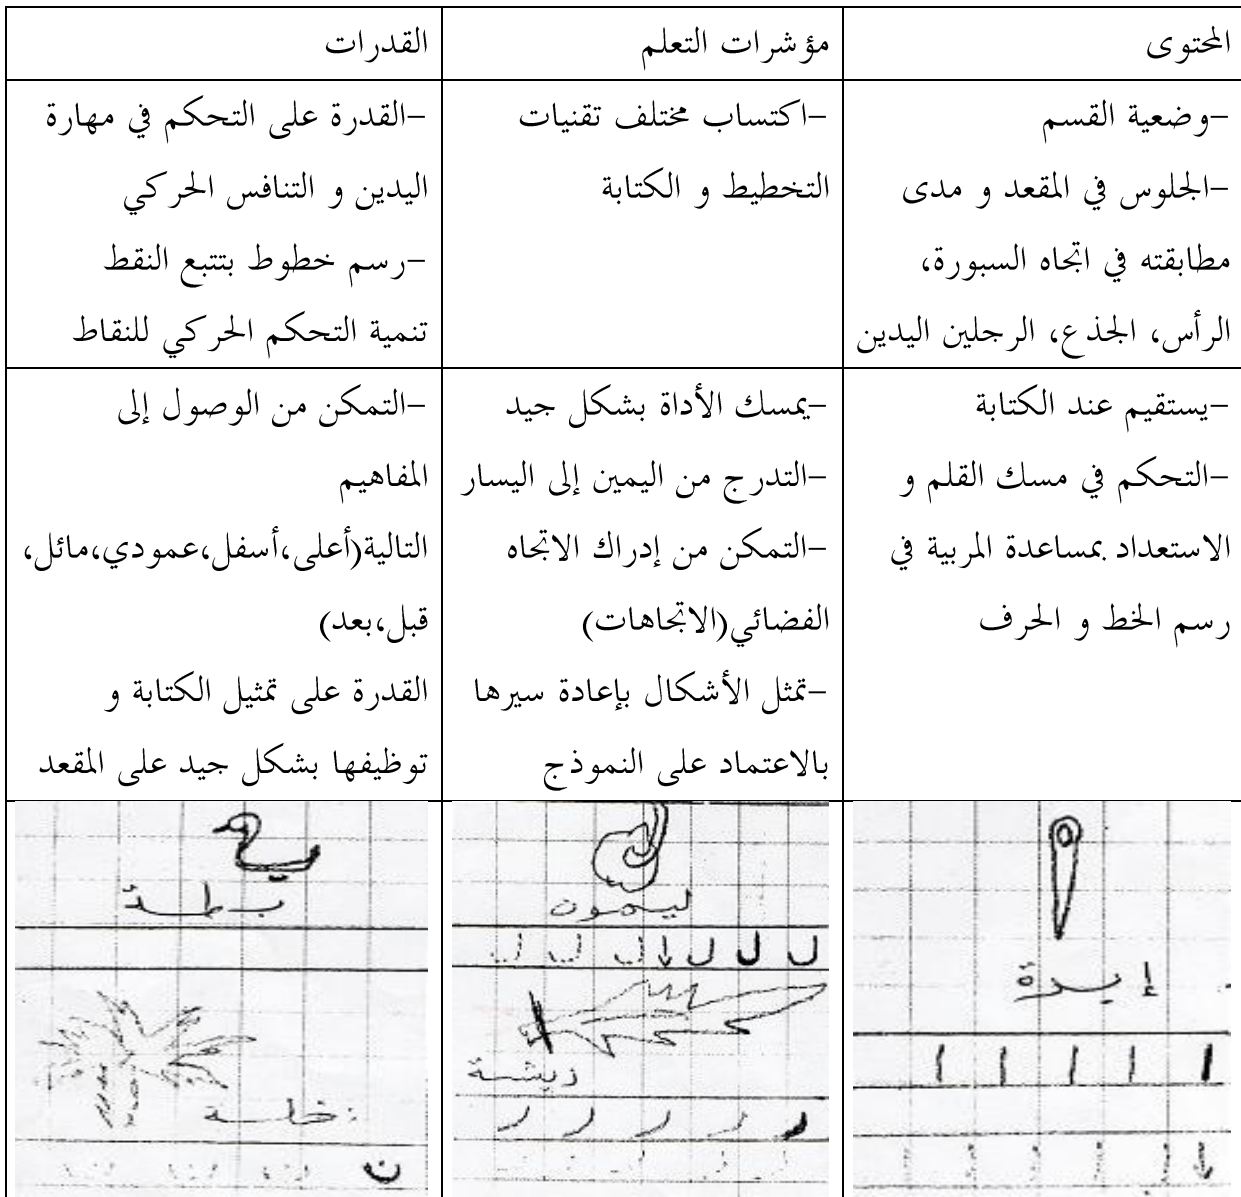 المحتوى
مؤشرات التعلم
القدرات
-وضعية القسم
-الجلوس في المقعد و مدى
مطابقته في اتجاه السبورة،
الرأس، الجذع، الرجلين اليدين
-اكتساب مختلف تقنيات
التخطيط و الكتابة
-القدرة على التحكم في مهارة
اليدين و التنافس الحركي
-رسم خطوط بتتبع النقط
تنمية التحكم الحركي للنقاط
-يستقيم عند الكتابة
-التحكم في مسك القلم و
الاستعداد بمساعدة المربية في
رسم الخط و الحرف
-يمسك الأداة بشكل جيد
-التدرج من اليمين إلى اليسار
-التمكن من إدراك الاتجاه
الفضائي(الاتجاهات)
-تمثل الأشكال بإعادة سيرها
بالاعتماد على النموذج
-التمكن من الوصول إلى
المفاهيم
التالية(أعلى،أسفل،عمودي،مائل،
قبل،بعد)
القدرة على تمثيل الكتابة و
توظيفها بشكل جيد على المقعد
إبرة
ا ا ا ا ا
ليمون
ل ل ل ل ل ل
ريشة
ر ر ر ر ر
بطة
نخلة
ن ن ن ن ن